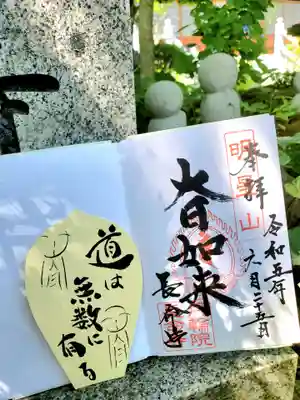 奉拝
令和五年
六月二十五日
明星山
大日如来
輪院
道は
無数に
有る